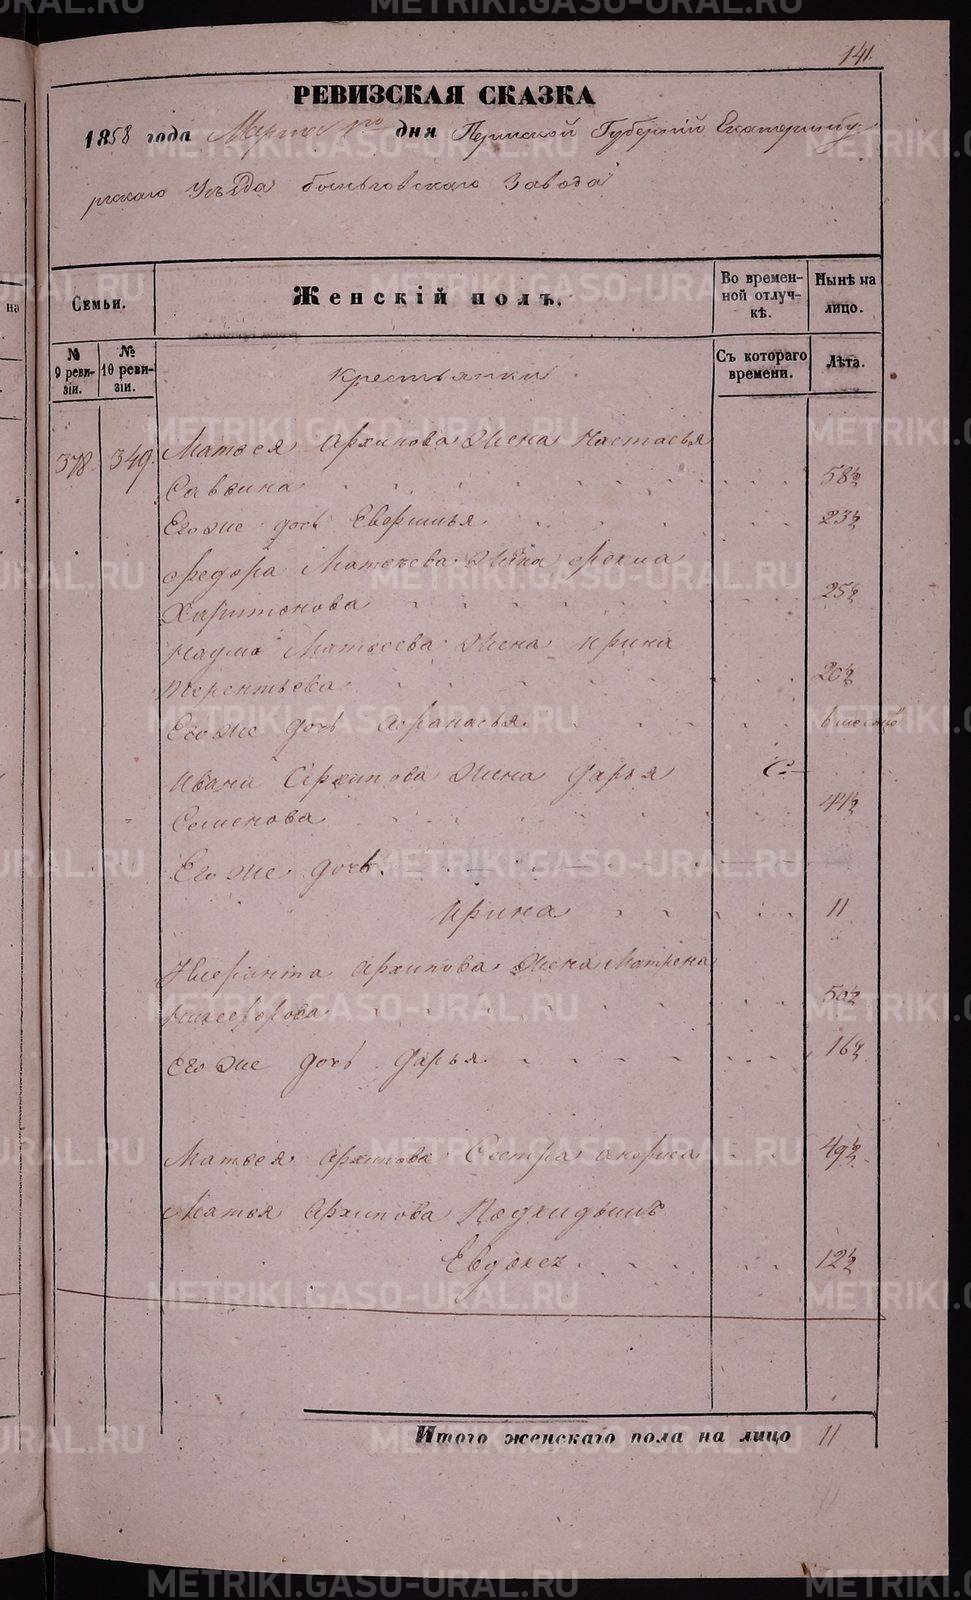 141.
РЕВИЗСКАЯ СКАЗКА
1858 года Марта 1го дня Пермской Губернiй Екатеринбу
ргскаго Уѣзда Завода
Семьи.
Женскiй полъ.
Во времен-
ной отлуч-
кѣ.
Нынѣ на
лицо.
№ 9 реви-
зiи.
№ 10 реви-
зiи.
Съ котораго
времени.
Лѣта.
Крестьянки
378. 349. Матвея Архипова Жена Настасья
Саввина 58½
Его же дочь 23½
Федора Матвеева Жена Фекла
Харитонова 25½
Наума Матвеева Жена Ирина
Терентьева 20½
Его же дочь Афанасья 6 месяцъ
Ивана Архипова Жена Дарья
Семенова 44½
Его же дочь
Ирина 11
Архипова Жена Матрена
Никифорова 50½
Его же дочь Дарья 16½
Матвея Архипова Сестра 49½
Матвея Архипова Подкидышъ
12½
Итого женскаго пола на лицо 11
METRIKI.GASO-URAL.RU